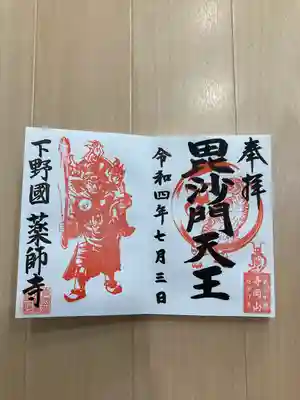 奉拝
毘沙門天王
令和四年七月三日
下野國 薬師寺
寺岡山